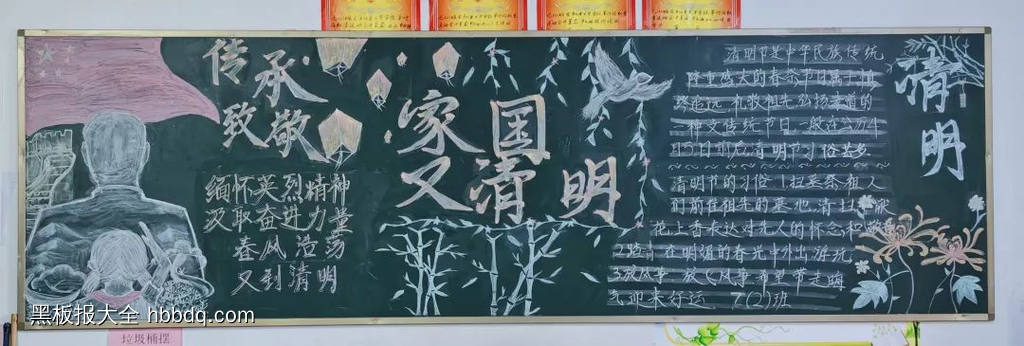 传承
致敬
缅怀英烈精神
及取奋进力量
春风浩荡
又到清明
家国
又清明
清明
清明节是中华民族传统
隆重盛大的春祭节日属于慎
终追远、礼敬祖先、弘扬孝道的
一种文传统节日一般在公历4
月5日前后清明节习俗甚多
清明节的习俗1扫墓祭祖人
们前往祖先的墓地,清扫
花上香表达对先人的怀念和敬意
2踏青在明媚的春光中外出游玩
3放风筝 放飞风筝希望节走晦
气迎来好运 7(2)班
黑板报大全 hbbdq.com
垃圾桶摆